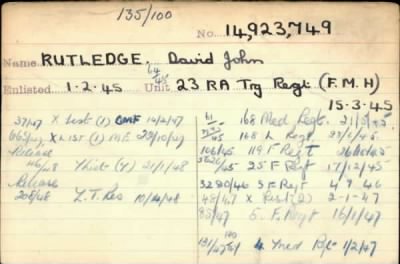 135/100
No. 14,923,749
Name RUTLEDGE. David John
64/45
Enlisted 1.2.45 Unit 23 RA Trg Regt (F.M.H)
15.3.45
37/47 X List (1) CMF 14/2/47
X LIST (1) M.E. 28/10/47
Release
Y list (Y) 21/1/48
Release
208/48 Y.T. Res 10/4/48
168 Med Regt.
168 L Regt.
106/45 119 F Regt
/45 25 F Regt 17/12/45
3220/46 5 F Regt 4.9.46
48/47 X List (2) 2-1-47
85/47 5. F. Regt 16/1/47
4 Med Rt 1/2/47